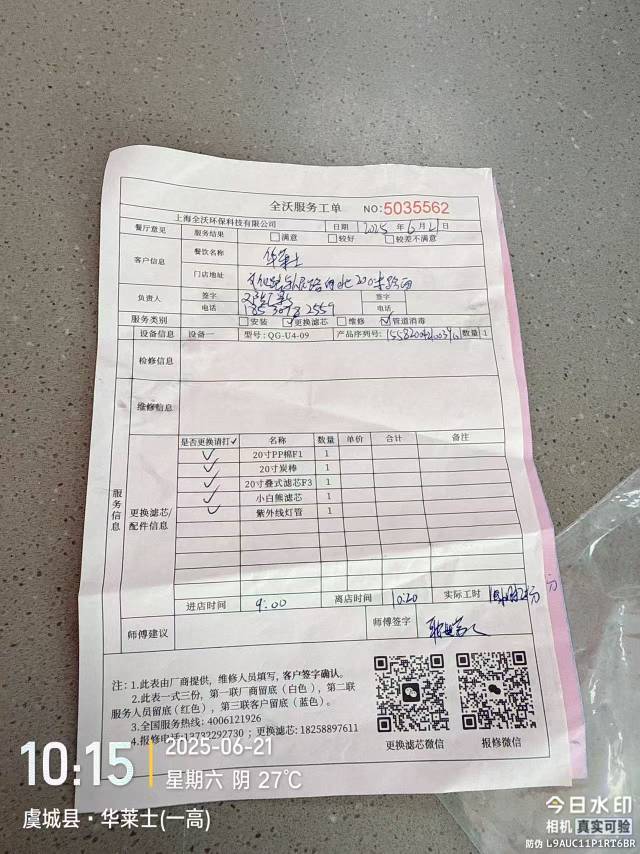 全沃服务工单 NO:5035562
上海全沃环保科技有限公司 日期 2025 年 6 月 21 日
餐厅意见 服务结果 满意 较好 较差不满意
客户信息 餐饮名称 华莱士
门店地址 200米路西
负责人 签字 签字
电话 18530982559 电话
服务类别 安装 更换滤芯 维修 管道消毒
设备信息 设备一 型号: QG-U4-09 产品序列号: 数量 1
检修信息
维修信息
服务信息
更换滤芯/配件信息
是否更换请打✓ 名称 数量 单价 合计 备注
✓ 20寸PP棉F1 1
✓ 20寸炭棒 1
✓ 20寸叠式滤芯F3 1
✓ 小白熊滤芯 1
✓ 紫外线灯管 1
进店时间 9:00 离店时间 10:20 实际工时 分
师傅建议 师傅签字
注: 1.此表由厂商提供, 维修人员填写, 客户签字确认。
2.此表一式三份, 第一联厂商留底 (白色), 第二联
服务人员留底 (红色), 第三联客户留底 (蓝色)。
3.全国服务热线: 4006121926
4.报修电话:13732292730 ; 更换滤芯: 18258897611
更换滤芯微信 报修微信
10:15 2025-06-21
星期六 阴 27℃
虞城县·华莱士(一高)
今日水印
相机 真实可验
防伪 L9AUC11P1RT6BR